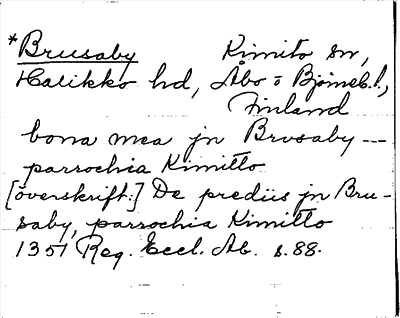 *Brusaby Kimito sn,
Halikko hd, Åbo o Björneb. l.,
Finland
bona mea jn Brusaby ---
parrochia Kimitto
[överskrift:] De prediis jn Bru-
saby, parrochia Kimitto
1351 Reg. Eccl. Ab. s. 88.